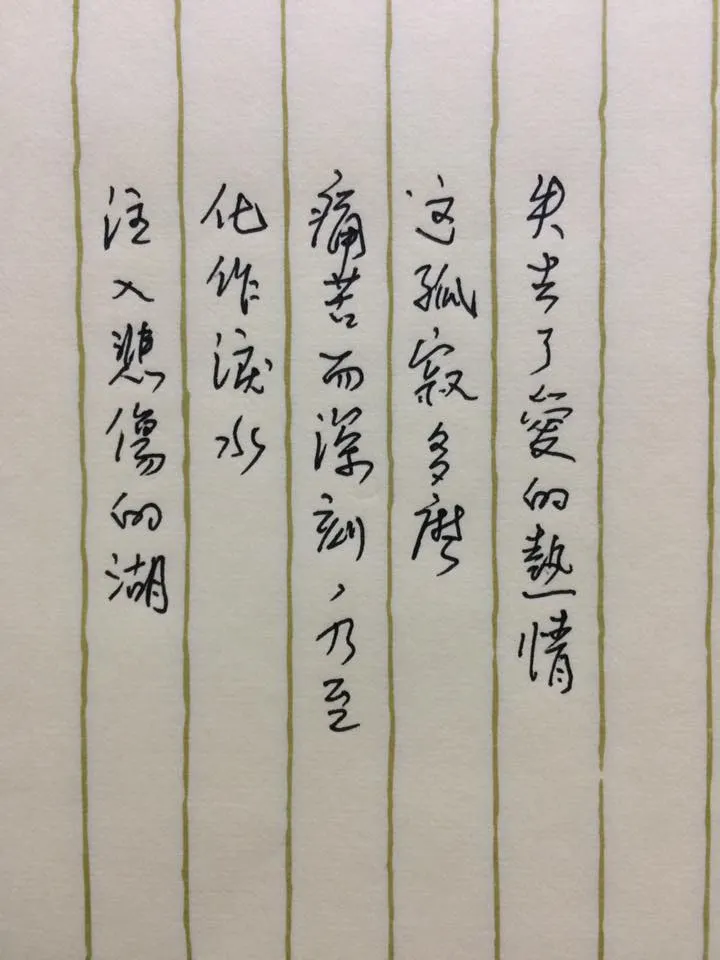 失去了愛的熱情
这孤寂多麽
痛苦而深刻，乃至
化作淚水
注入悲傷的湖